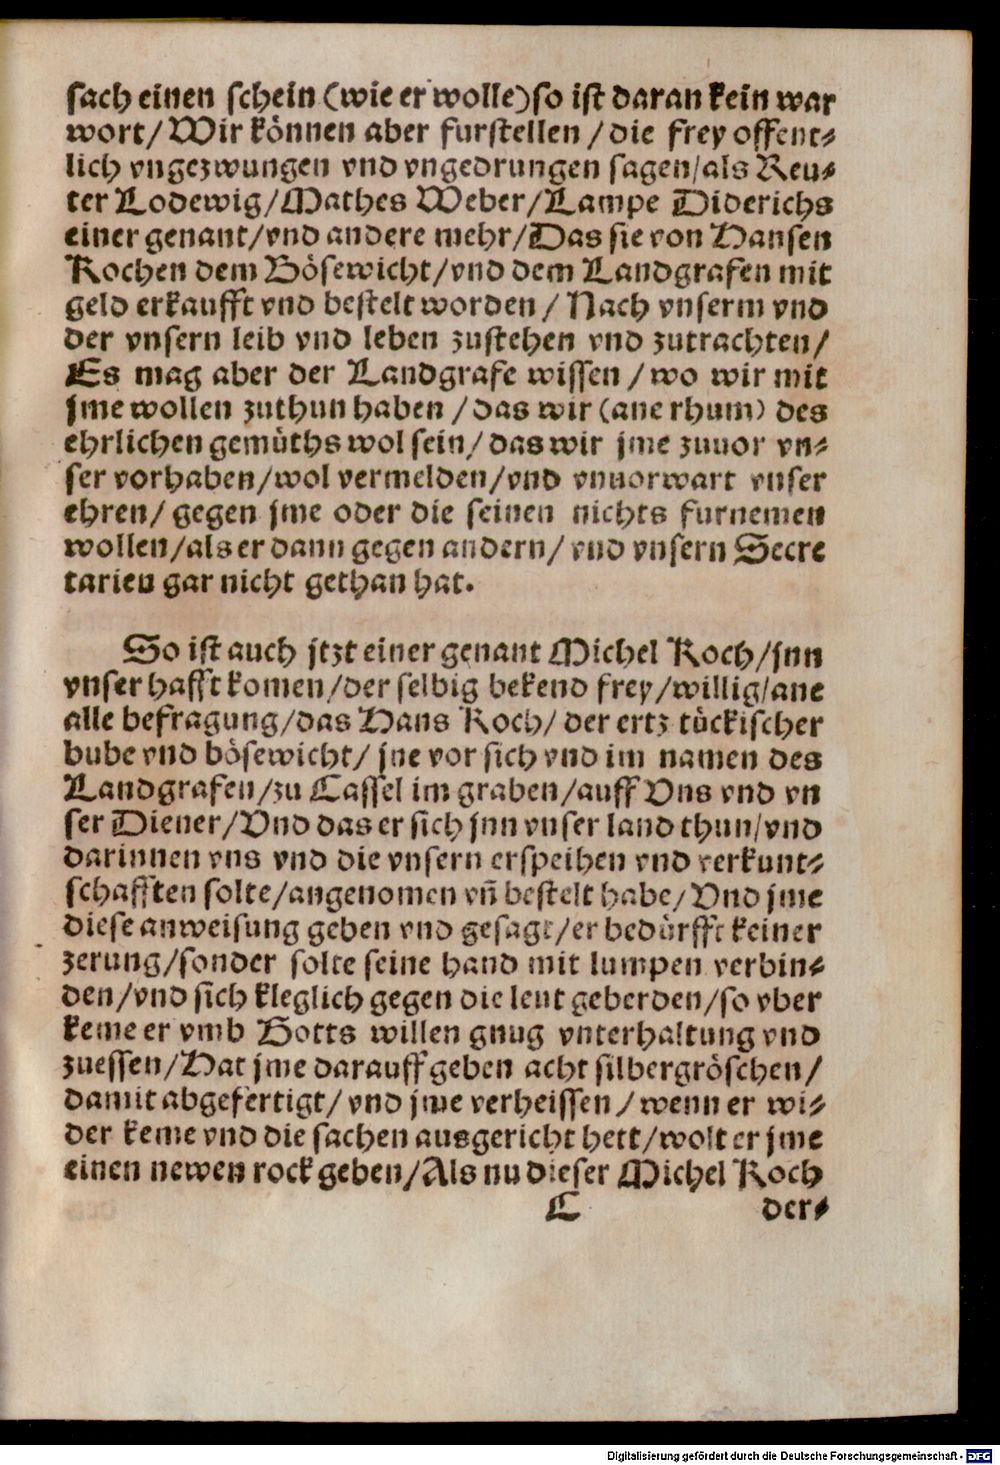 sach einen schein (wie er wolle) so ist daran kein war
wort/ Wir können aber furstellen / die frey offent⸗
lich vngezwungen vnd vngedrungen sagen/als Reu⸗
ter Lodewig/Mathes Weber/Lampe Diderichs
einer genant/vnd andere mehr/Das sie von Hansen
Kochen dem Bösewicht/vnd dem Landgrafen mit
geld erkaufft vnd bestelt worden / Nach vnserm vnd
der vnsern leib vnd leben zustehen vnd zutrachten/
Es mag aber der Landgrafe wissen / wo wir mit
jme wollen zuthun haben / das wir (ane rhum) des
ehrlichen gemüths wol sein/ das wir jme zuuor vn⸗
ser vorhaben/wol vermelden/vnd vnuorwart vnser
ehren/ gegen jme oder die seinen nichts furnemen
wollen/als er dann gegen andern/ vnd vnsern Secre
tarien gar nicht gethan hat.
So ist auch jtzt einer genant Michel Koch/jnn
vnser hafft komen/der selbig bekend frey/willig/ane
alle befragung/das Hans Koch/ der ertz tückischer
bube vnd bösewicht/ jne vor sich vnd im namen des
Landgrafen/zu Cassel im graben/auff Vns vnd vn
ser Diener/Vnd das er sich jnn vnser land thun/vnd
darinnen vns vnd die vnsern erspeihen vnd verkunt⸗
schafften solte/angenomen vñ bestelt habe/ Vnd jme
diese anweisung geben vnd gesagt/er bedürfft keiner
zerung/sonder solte seine hand mit lumpen verbin⸗
den/vnd sich kleglich gegen die leut geberden/so vber
keme er vmb Gotts willen gnug vnterhaltung vnd
zuessen/Hat jme darauff geben acht silbergröschen/
damit abgefertigt/ vnd jme verheissen / wenn er wi⸗
der keme vnd die sachen ausgericht hett/wolt er jme
einen newen rock geben/Als nu dieser Michel Koch
C der⸗
Digitalisierung gefördert durch die Deutsche Forschungsgemeinschaft - DFG